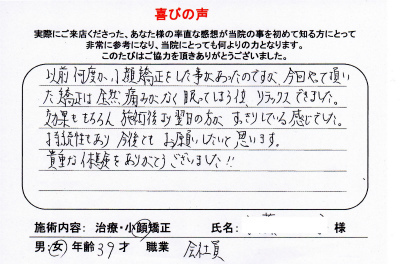 喜びの声
実際にご来店くださった、あなた様の率直な感想が当院の事を初めて知る方にとって
非常に参考になり、当院にとっても何よりの力となります。
このたびはご協力を頂きありがとうございました。
以前何度か小顔矯正をした事があったのですが、今回やって頂い
た矯正は全然痛みがなく眠ってしまう位、リラックスできました。
効果ももちろん施術後より翌日の方が、すっきりしている感じでした。
持続性もあり今後ともお願いしたいと思います。
貴重な体験をありがとうございました!!
施術内容: 治療・小顔矯正 氏名: 様
男・女 年齢39才 職業 会社員